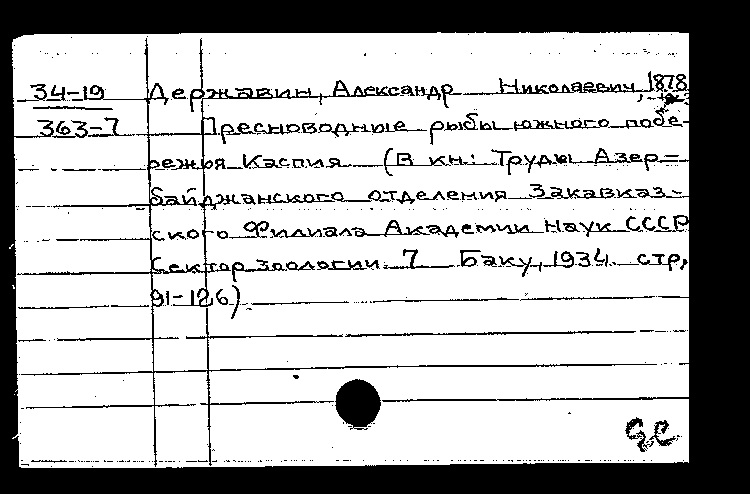 34-19
363-7
Державин, Александр Николаевич, 1878
Пресноводные рыбы южного побе-
режья Каспия (В кн: Труды Азер=
байджанского отделения Закавказ-
ского Филиала Академии Наук СССР
Сектор зоологии. 7 Баку, 1934. стр,
91-126)